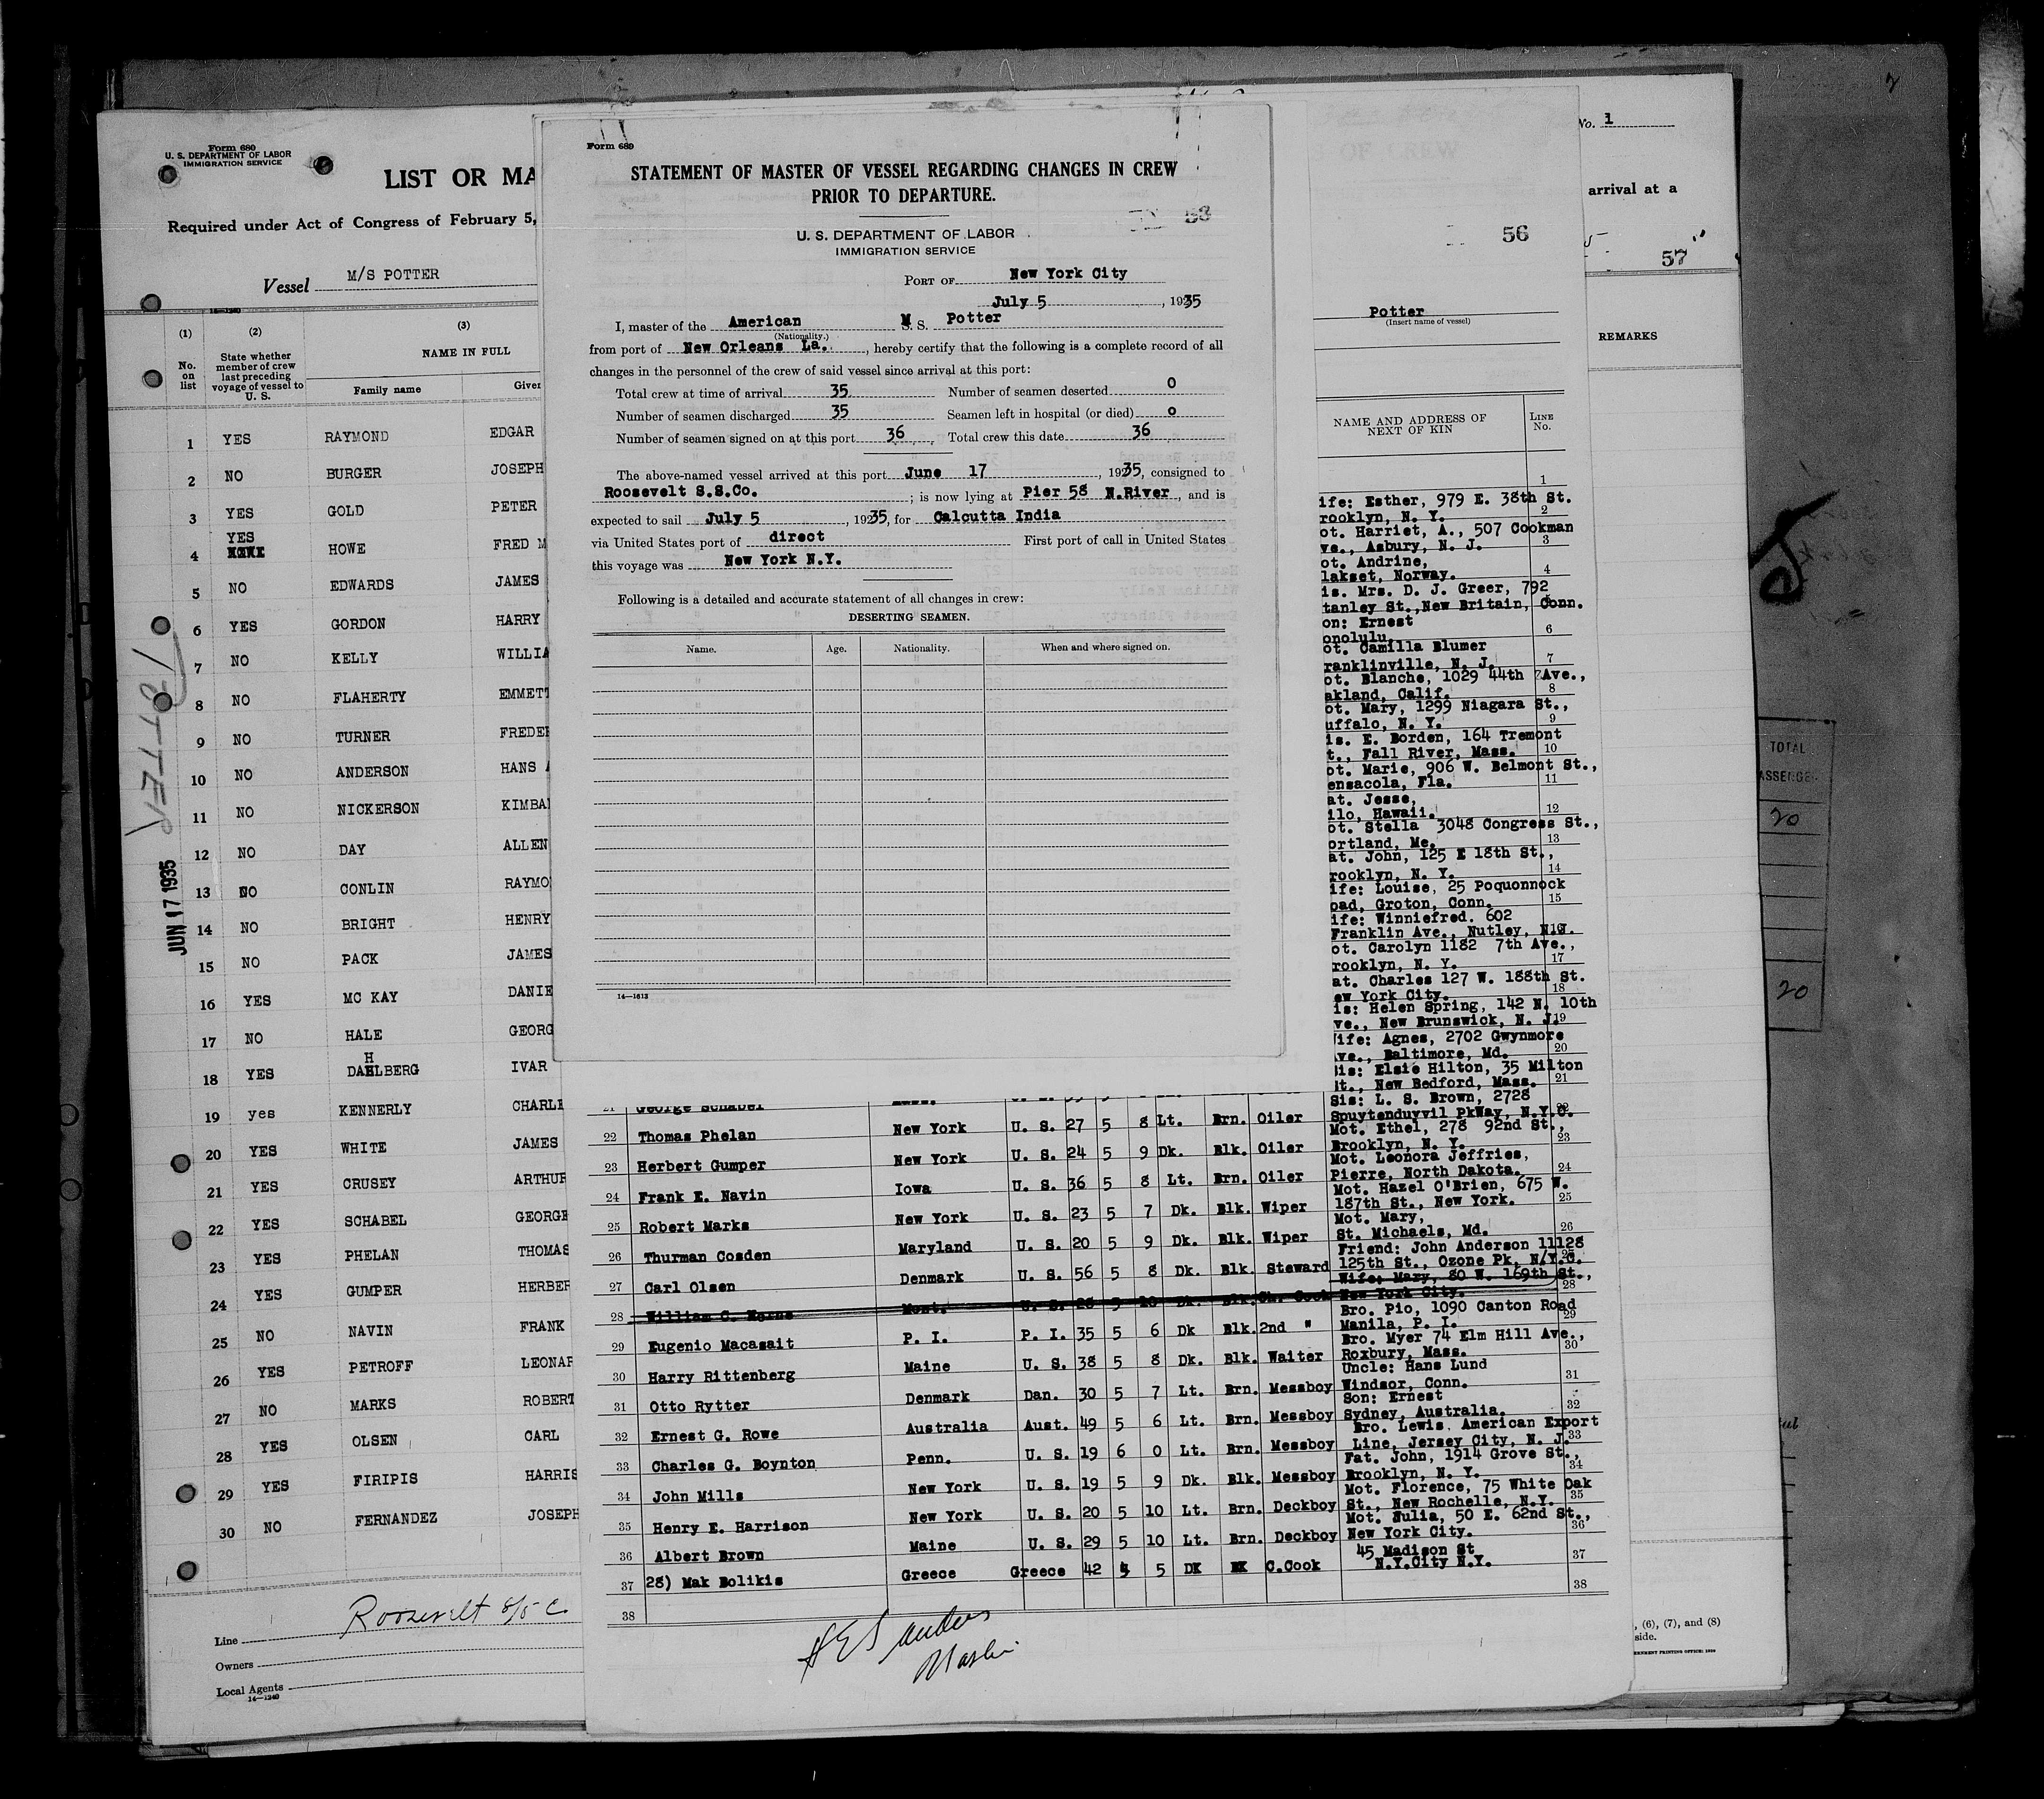 Form 680
U. S. DEPARTMENT OF LABOR
IMMIGRATION SERVICE
LIST OR MA
Required under Act of Congress of February 5,
Vessel M/S POTTER
14—1240
(1) (2) (3)
No. on list
State whether member of crew last preceding voyage of vessel to U. S.
NAME IN FULL
Family name Given
1 YES RAYMOND EDGAR
2 NO BURGER JOSEPH
3 YES GOLD PETER
YES
4 HOWE FRED M
5 NO EDWARDS JAMES
6 YES GORDON HARRY
7 NO KELLY WILLIA
8 NO FLAHERTY EMMETT
9 NO TURNER FREDER
10 NO ANDERSON HANS A
11 NO NICKERSON KIMBA
12 NO DAY ALLEN
13 NO CONLIN RAYMO
14 NO BRIGHT HENRY
15 NO PACK JAMES
16 YES MC KAY DANIE
17 NO HALE GEORG
H
18 YES DAHLBERG IVAR
19 yes KENNERLY CHARLE
20 YES WHITE JAMES
21 YES CRUSEY ARTHUR
22 YES SCHABEL GEORGE
23 YES PHELAN THOMAS
24 YES GUMPER HERBER
25 NO NAVIN FRANK
26 YES PETROFF LEONAR
27 NO MARKS ROBERT
28 YES OLSEN CARL
29 YES FIRIPIS HARRIS
30 NO FERNANDEZ JOSEPH
Line Roosevelt S/S C
Owners
Local Agents
14—1240
POTTER
JUN 17 1935
Form 689
STATEMENT OF MASTER OF VESSEL REGARDING CHANGES IN CREW
PRIOR TO DEPARTURE.
58
U. S. DEPARTMENT OF LABOR
IMMIGRATION SERVICE
PORT OF New York City
July 5, 1935
I, master of the American M S. S. Potter
(Nationality.)
from port of New Orleans La., hereby certify that the following is a complete record of all
changes in the personnel of the crew of said vessel since arrival at this port:
Total crew at time of arrival 35 Number of seamen deserted 0
Number of seamen discharged 35 Seamen left in hospital (or died) 0
Number of seamen signed on at this port 36, Total crew this date 36
The above-named vessel arrived at this port June 17, 1935, consigned to
Roosevelt S.S.Co.; is now lying at Pier 58 N.River, and is
expected to sail July 5, 1935, for Calcutta India
via United States port of direct First port of call in United States
this voyage was New York N.Y.
Following is a detailed and accurate statement of all changes in crew:
DESERTING SEAMEN.
Name. Age. Nationality. When and where signed on.
14—1613
56
Potter
(Insert name of vessel)
NAME AND ADDRESS OF NEXT OF KIN LINE No.
1
ife: Esther, 979 E. 38th St.
rooklyn, N. Y. 2
ot. Harriet, A., 507 Cookman
ve., Asbury, N. J. 3
ot. Andrine,
lakset, Norway. 4
is. Mrs. D. J. Greer, 792
tanley St., New Britain, Conn.
on: Ernest
onolulu, 6
ot. Camilla Blumer
ranklinville, N. J. 7
ot. Blanche, 1029 44th Ave.,
akland, Calif. 8
ot. Mary, 1299 Niagara St.,
uffalo, N. Y. 9
is. E. Borden, 164 Tremont
t., Fall River, Mass. 10
ot. Marie, 906 W. Belmont St.,
ensacola, Fla. 11
at. Jesse,
ilo, Hawaii. 12
ot. Stella 3048 Congress St.,
ortland, Me. 13
at. John, 125 E 18th St.,
rooklyn, N. Y. 14
ife: Louise, 25 Poquonnock
oad, Groton, Conn. 15
ife: Winniefred. 602
Franklin Ave., Nutley, N.J.
ot. Carolyn 1182 7th Ave.,
rooklyn, N. Y. 17
at. Charles 127 W. 188th St.
ew York City. 18
is: Helen Spring, 142 N. 10th
ve., New Brunswick, N. J. 19
ife: Agnes, 2702 Gwynmore
ve., Baltimore, Md. 20
is: Elsie Hilton, 35 Milton
t., New Bedford, Mass. 21
Sis: L. S. Brown, 2728
Spuytenduyvil PkWay, N.Y.C. 22
21 George Schabel
22 Thomas Phelan New York U. S. 27 5 8 Lt. Brn. Oiler Mot. Ethel, 278 92nd St., Brooklyn, N. Y. 23
23 Herbert Gumper New York U. S. 24 5 9 Dk. Blk. Oiler Mot. Leonora Jeffries, Pierre, North Dakota. 24
24 Frank E. Navin Iowa U. S. 36 5 8 Lt. Brn. Oiler Mot. Hazel O'Brien, 675 W. 187th St., New York. 25
25 Robert Marks New York U. S. 23 5 7 Dk. Blk. Wiper Mot. Mary, St. Michaels, Md. 26
26 Thurman Cosden Maryland U. S. 20 5 9 Dk. Blk. Wiper Friend: John Anderson 11128 125th St., Ozone Pk, N.Y.C.
27 Carl Olsen Denmark U. S. 56 5 8 Dk. Blk. Steward Wife: Mary, 80 W. 169th St., New York City. 28
28 William C. Mont. U. S. 28 5 10 Dk. Blk. Ch. Cook
29 Eugenio Macasait P. I. P. I. 35 5 6 Dk Blk. 2nd " Bro. Pio, 1090 Canton Road Manila, P. I. 29
30 Harry Rittenberg Maine U. S. 38 5 8 Dk. Blk. Waiter Bro. Myer 74 Elm Hill Ave., Roxbury, Mass. 30
31 Otto Rytter Denmark Dan. 30 5 7 Lt. Brn. Messboy Uncle: Hans Lund Windsor, Conn. 31
32 Ernest G. Rowe Australia Aust. 49 5 6 Lt. Brn. Messboy Son: Ernest Sydney, Australia. 32
33 Charles G. Boynton Penn. U. S. 19 6 0 Lt. Brn. Messboy Bro. Lewis. American Export Line, Jersey City, N. J. 33
34 John Mills New York U. S. 19 5 9 Dk. Blk. Messboy Fat. John, 1914 Grove St., Brooklyn, N. Y. 34
35 Henry E. Harrison New York U. S. 20 5 10 Lt. Brn. Deckboy Mot. Florence, 75 White Oak St., New Rochelle, N.Y. 35
36 Albert Brown Maine U. S. 29 5 10 Lt. Brn. Deckboy Mot. Julia, 50 E. 62nd St., New York City. 36
37 28) Mak Bolikis Greece Greece 42 5 5 DK C.Cook 45 Madison St N.Y.City N.Y. 37
38 38
H E Sanders
Master
No. 1
arrival at a
57
REMARKS
, (6), (7), and (8)
side.
ERNMENT PRINTING OFFICE: 1929
TOTAL
ASSENGE
20
20